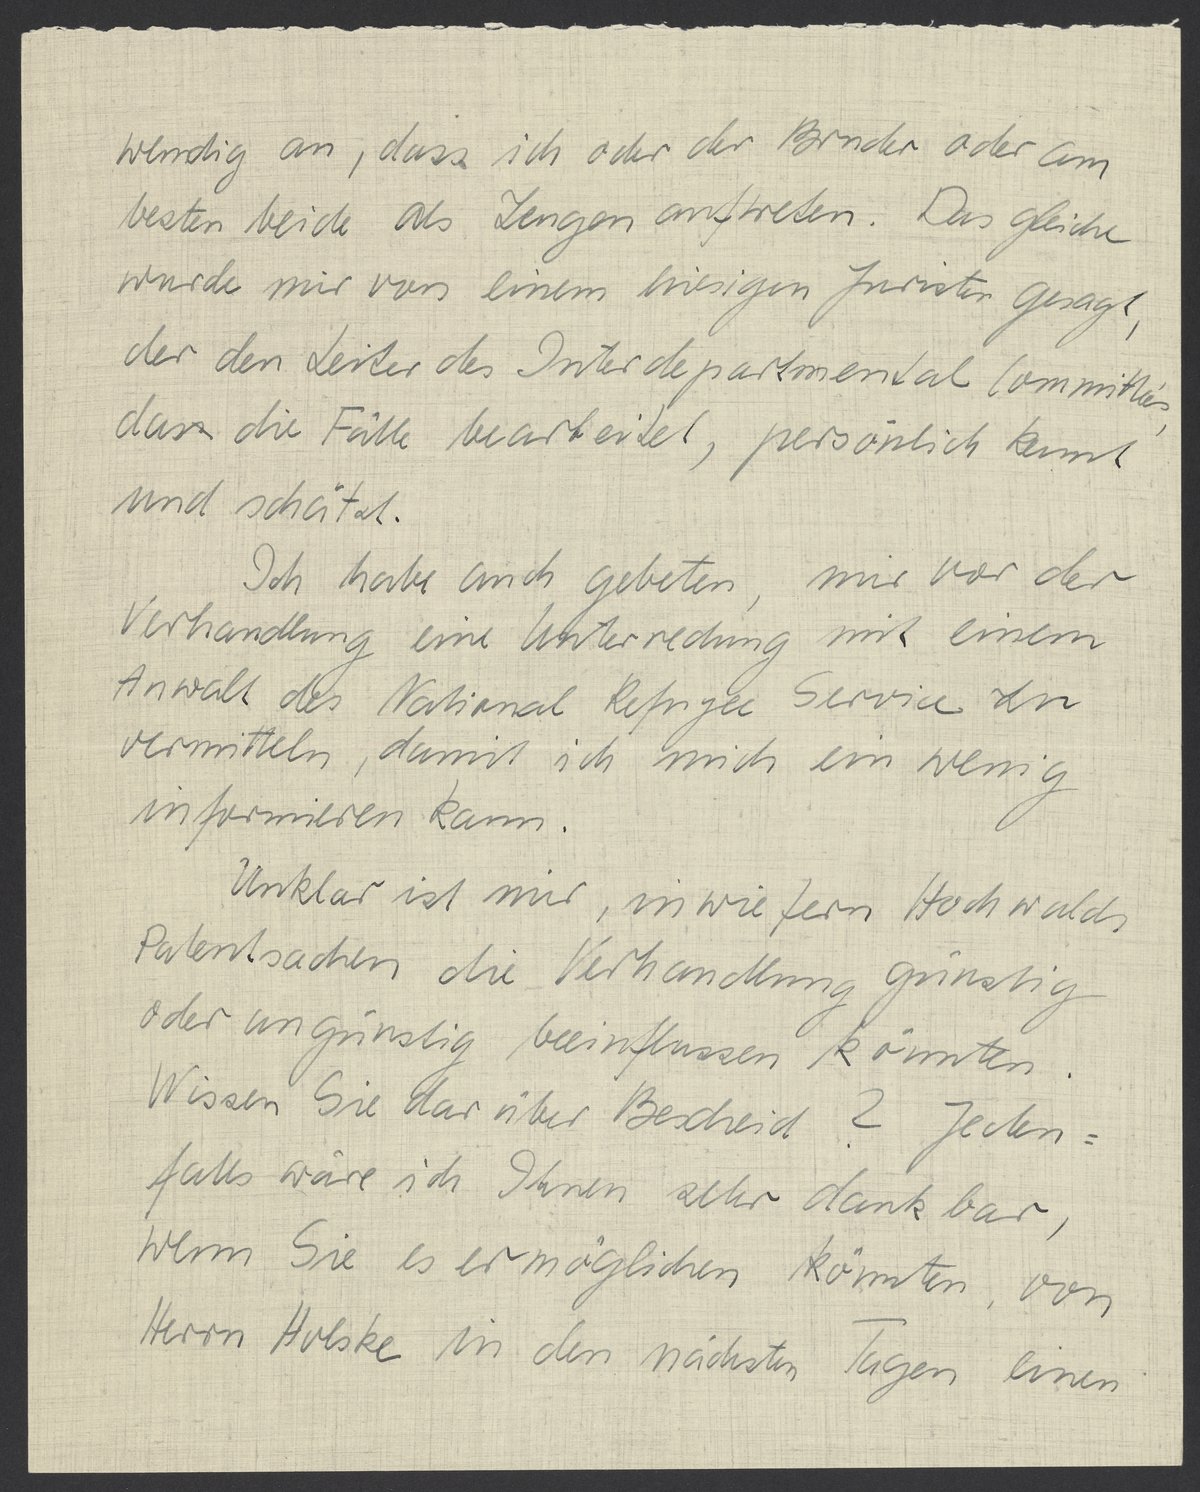 wendig an, dass ich oder der Bruder oder am
besten beide als Zeugen auftreten. Das gleiche
wurde mir von einem hiesigen Juristen gesagt,
der den Leiter des Interdepartmental Committees,
dass die Fälle bearbeitet, persönlich kennt
und schätzt.
Ich habe auch gebeten, mir vor der
Verhandlung eine Unterredung mit einem
Anwalt des National Refugee Service zu
vermitteln, damit ich mich ein wenig
informieren kann.
Unklar ist mir, inwiefern Hochwalds
Patentsachen die Verhandlung günstig
oder ungünstig beeinflussen könnten.
Wissen Sie darüber Bescheid? Jeden=
falls wäre ich Ihnen sehr dankbar,
wenn Sie es ermöglichen könnten, von
Herrn Holske in den nächsten Tagen einen